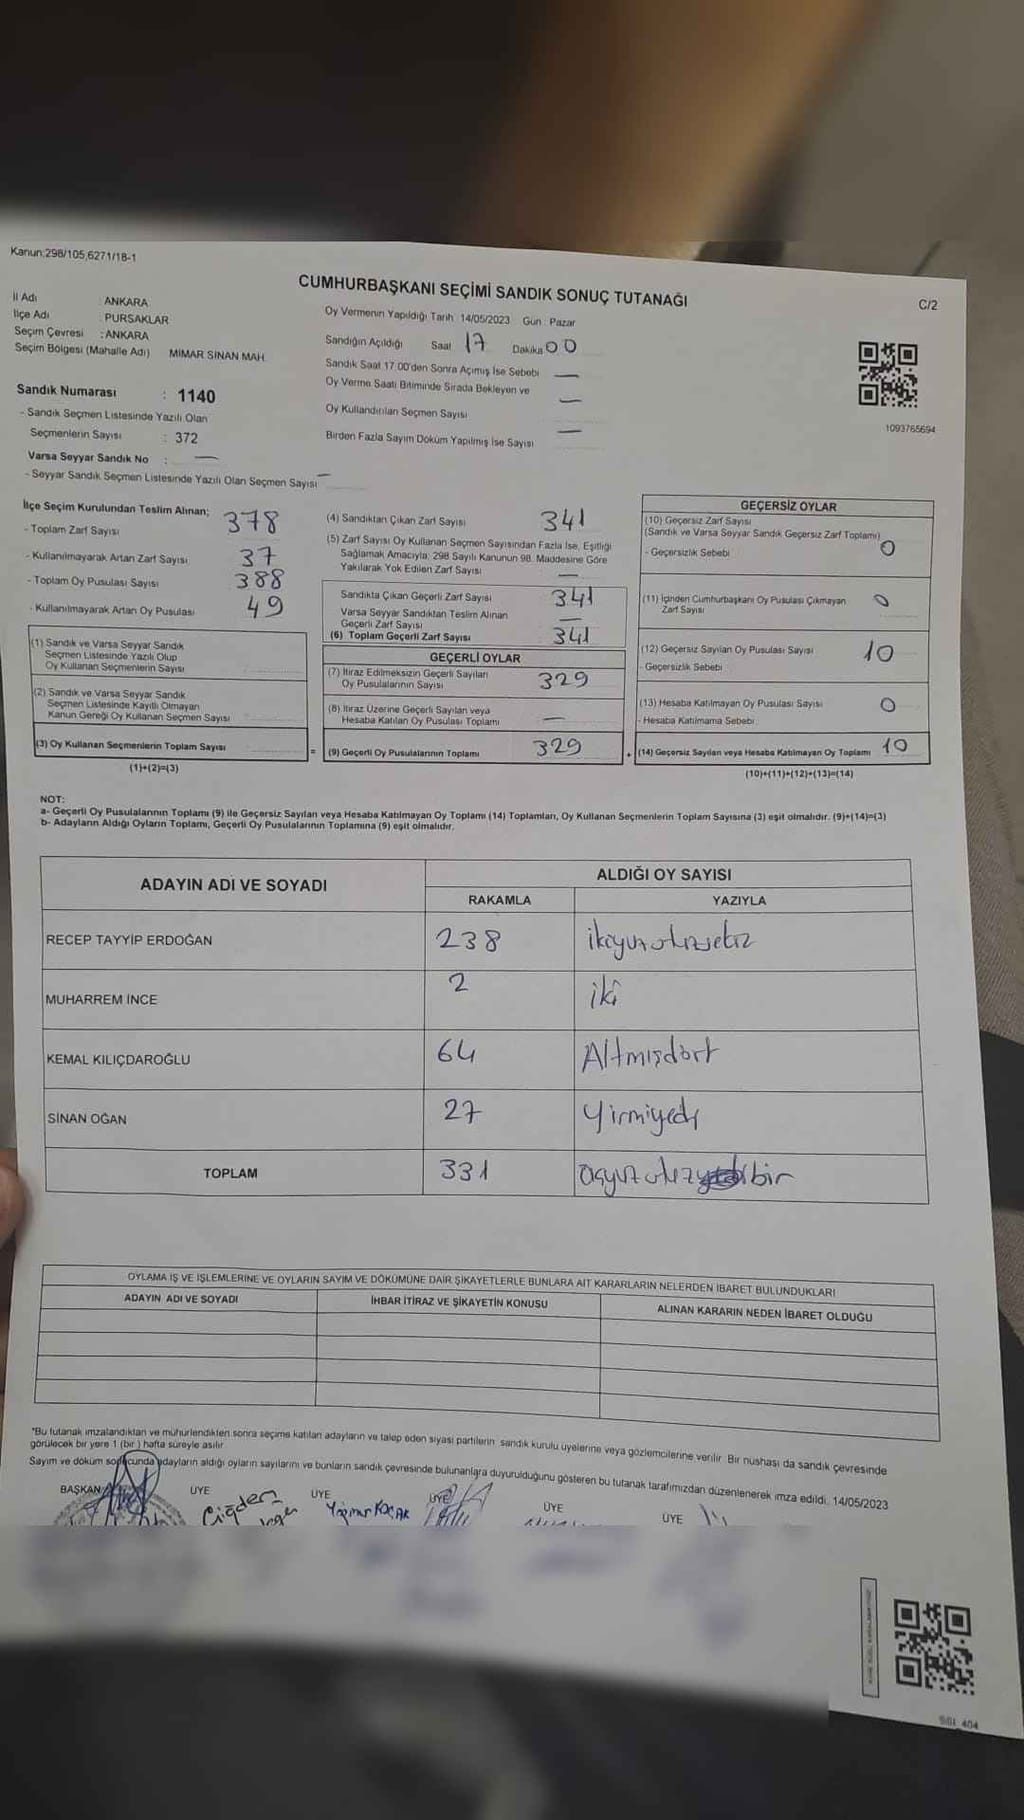 Kanun;298/105,6271/18-1
CUMHURBAŞKANI SEÇİMİ SANDIK SONUÇ TUTANAĞI
C/2
İl Adı : ANKARA
İlçe Adı : PURSAKLAR
Seçim Çevresi : ANKARA
Seçim Bölgesi (Mahalle Adı) MİMAR SİNAN MAH.
Sandık Numarası : 1140
- Sandık Seçmen Listesinde Yazılı Olan
Seçmenlerin Sayısı : 372
Varsa Seyyar Sandık No : —
- Seyyar Sandık Seçmen Listesinde Yazılı Olan Seçmen Sayısı —
Oy Vermenin Yapıldığı Tarih : 14/05/2023 Gün : Pazar
Sandığın Açıldığı Saat 17 Dakika 00
Sandık Saat 17.00'den Sonra Açımış İse Sebebi —
Oy Verme Saati Bitiminde Sırada Bekleyen ve
Oy Kullandırılan Seçmen Sayısı —
Birden Fazla Sayım Döküm Yapılmış İse Sayısı —
1093765694
İlçe Seçim Kurulundan Teslim Alınan;
- Toplam Zarf Sayısı 378
- Kullanılmayarak Artan Zarf Sayısı 37
- Toplam Oy Pusulası Sayısı 388
- Kullanılmayarak Artan Oy Pusulası 49
(1) Sandık ve Varsa Seyyar Sandık
Seçmen Listesinde Yazılı Olup
Oy Kullanan Seçmenlerin Sayısı
(2) Sandık ve Varsa Seyyar Sandık
Seçmen Listesinde Kayıtlı Olmayan
Kanun Gereği Oy Kullanan Seçmen Sayısı
(3) Oy Kullanan Seçmenlerin Toplam Sayısı
(1)+(2)=(3)
=
(4) Sandıktan Çıkan Zarf Sayısı 341
(5) Zarf Sayısı Oy Kullanan Seçmen Sayısından Fazla İse, Eşitliği
Sağlamak Amacıyla; 298 Sayılı Kanunun 98. Maddesine Göre
Yakılarak Yok Edilen Zarf Sayısı —
Sandıkta Çıkan Geçerli Zarf Sayısı 341
Varsa Seyyar Sandıktan Teslim Alınan
Geçerli Zarf Sayısı —
(6) Toplam Geçerli Zarf Sayısı 341
GEÇERLİ OYLAR
(7) İtiraz Edilmeksizin Geçerli Sayılan
Oy Pusulalarının Sayısı 329
(8) İtiraz Üzerine Geçerli Sayılan veya
Hesaba Katılan Oy Pusulası Toplamı —
(9) Geçerli Oy Pusulalarının Toplamı 329
+
GEÇERSİZ OYLAR
(10) Geçersiz Zarf Sayısı
(Sandık ve Varsa Seyyar Sandık Geçersiz Zarf Toplamı) 0
- Geçersizlik Sebebi
(11) İçinden Cumhurbaşkanı Oy Pusulası Çıkmayan
Zarf Sayısı 0
(12) Geçersiz Sayılan Oy Pusulası Sayısı 10
- Geçersizlik Sebebi
(13) Hesaba Katılmayan Oy Pusulası Sayısı 0
- Hesaba Katılmama Sebebi
(14) Geçersiz Sayılan veya Hesaba Katılmayan Oy Toplamı 10
(10)+(11)+(12)+(13)=(14)
NOT:
a- Geçerli Oy Pusulalarının Toplamı (9) ile Geçersiz Sayılan veya Hesaba Katılmayan Oy Toplamı (14) Toplamları, Oy Kullanan Seçmenlerin Toplam Sayısına (3) eşit olmalıdır. (9)+(14)=(3)
b- Adayların Aldığı Oyların Toplamı, Geçerli Oy Pusulalarının Toplamına (9) eşit olmalıdır.
ADAYIN ADI VE SOYADI
ALDIĞI OY SAYISI
RAKAMLA YAZIYLA
RECEP TAYYİP ERDOĞAN 238 ikiyüzotuzsekiz
MUHARREM İNCE 2 iki
KEMAL KILIÇDAROĞLU 64 Altmışdört
SİNAN OĞAN 27 Yirmiyedi
TOPLAM 331 üçyüzotuz bir
OYLAMA İŞ VE İŞLEMLERİNE VE OYLARIN SAYIM VE DÖKÜMÜNE DAİR ŞİKAYETLERLE BUNLARA AİT KARARLARIN NELERDEN İBARET BULUNDUKLARI
ADAYIN ADI VE SOYADI İHBAR İTİRAZ VE ŞİKAYETİN KONUSU ALINAN KARARIN NEDEN İBARET OLDUĞU
"Bu tutanak imzalandıktan ve mühürlendikten sonra seçime katılan adayların ve talep eden siyasi partilerin sandık kurulu üyelerine veya gözlemcilerine verilir. Bir nüshası da sandık çevresinde
görülecek bir yere 1 (bir) hafta süreyle asılır.
Sayım ve döküm sonucunda adayların aldığı oyların sayılarını ve bunların sandık çevresinde bulunanlara duyurulduğunu gösteren bu tutanak tarafımızdan düzenlenerek imza edildi. 14/05/2023
BAŞKAN ÜYE ÜYE ÜYE ÜYE ÜYE
Çiğdem
Yağmur KOÇAK